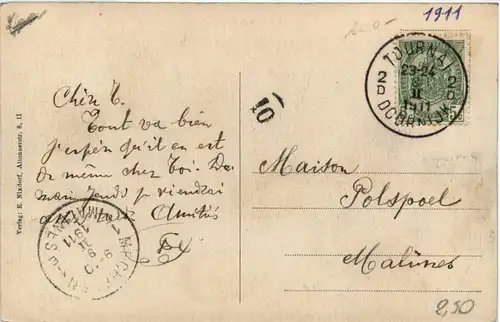 1911
TOURNAI
23-24
II
1911
DOORNIJK
2D
2D
10
Chèr E.
Tout va bien
j'espère qu'il en est
de même chez toi. De
main je viendrai
Amitiés
Maison
Polspoel
Malines
1911
II
2,50
Verlag: E. Nixdorf, Altonaerstr. 8, II